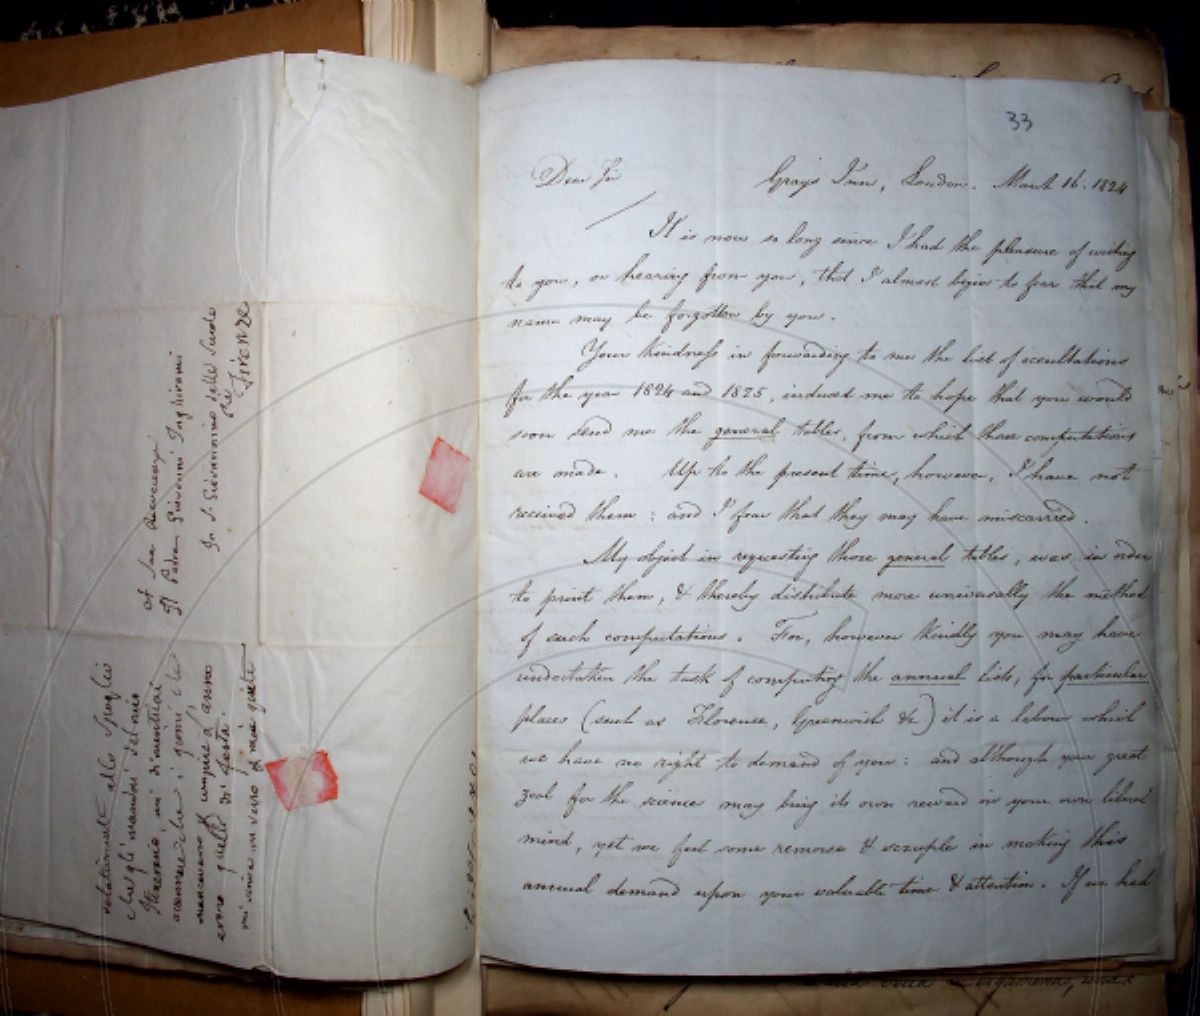 33
Dear Sir
Grays Inn, London. March 16. 1824
It is now so long since I had the pleasure of writing
to you, or hearing from you, that I almost begin to fear that my
name may be forgotten by you.
Your kindness in forwarding to me the list of occultations
for the year 1824 and 1825, induced me to hope that you would
soon send me the general tables, from which those computations
are made. Up to the present time, however, I have not
received them: and I fear that they may have miscarried.
My object in requesting those general tables, was in order
to print them, & thereby distribute more universally the method
of such computations. For, however kindly you may have
undertaken the task of computing the annual lists, for particular
places (such as Florence, Greenwich &c) it is a labour which
we have no right to demand of you: and although your great
zeal for the science may bring its own reward in your own liberal
mind, yet we feel some remorse & scruple in making this
annual demand upon your valuable time & attention. If we had
Al Suo Reverenza
Il Padre Giovanni Inghirami
In S. Giovannino delle Scuole
Pie Firenze
relativamente allo spoglio
che gli mandai del mio
Itenerario, mi dimenticai
accennare che i giorni che
mancavano a compire l'anno
erano quelli di festa.